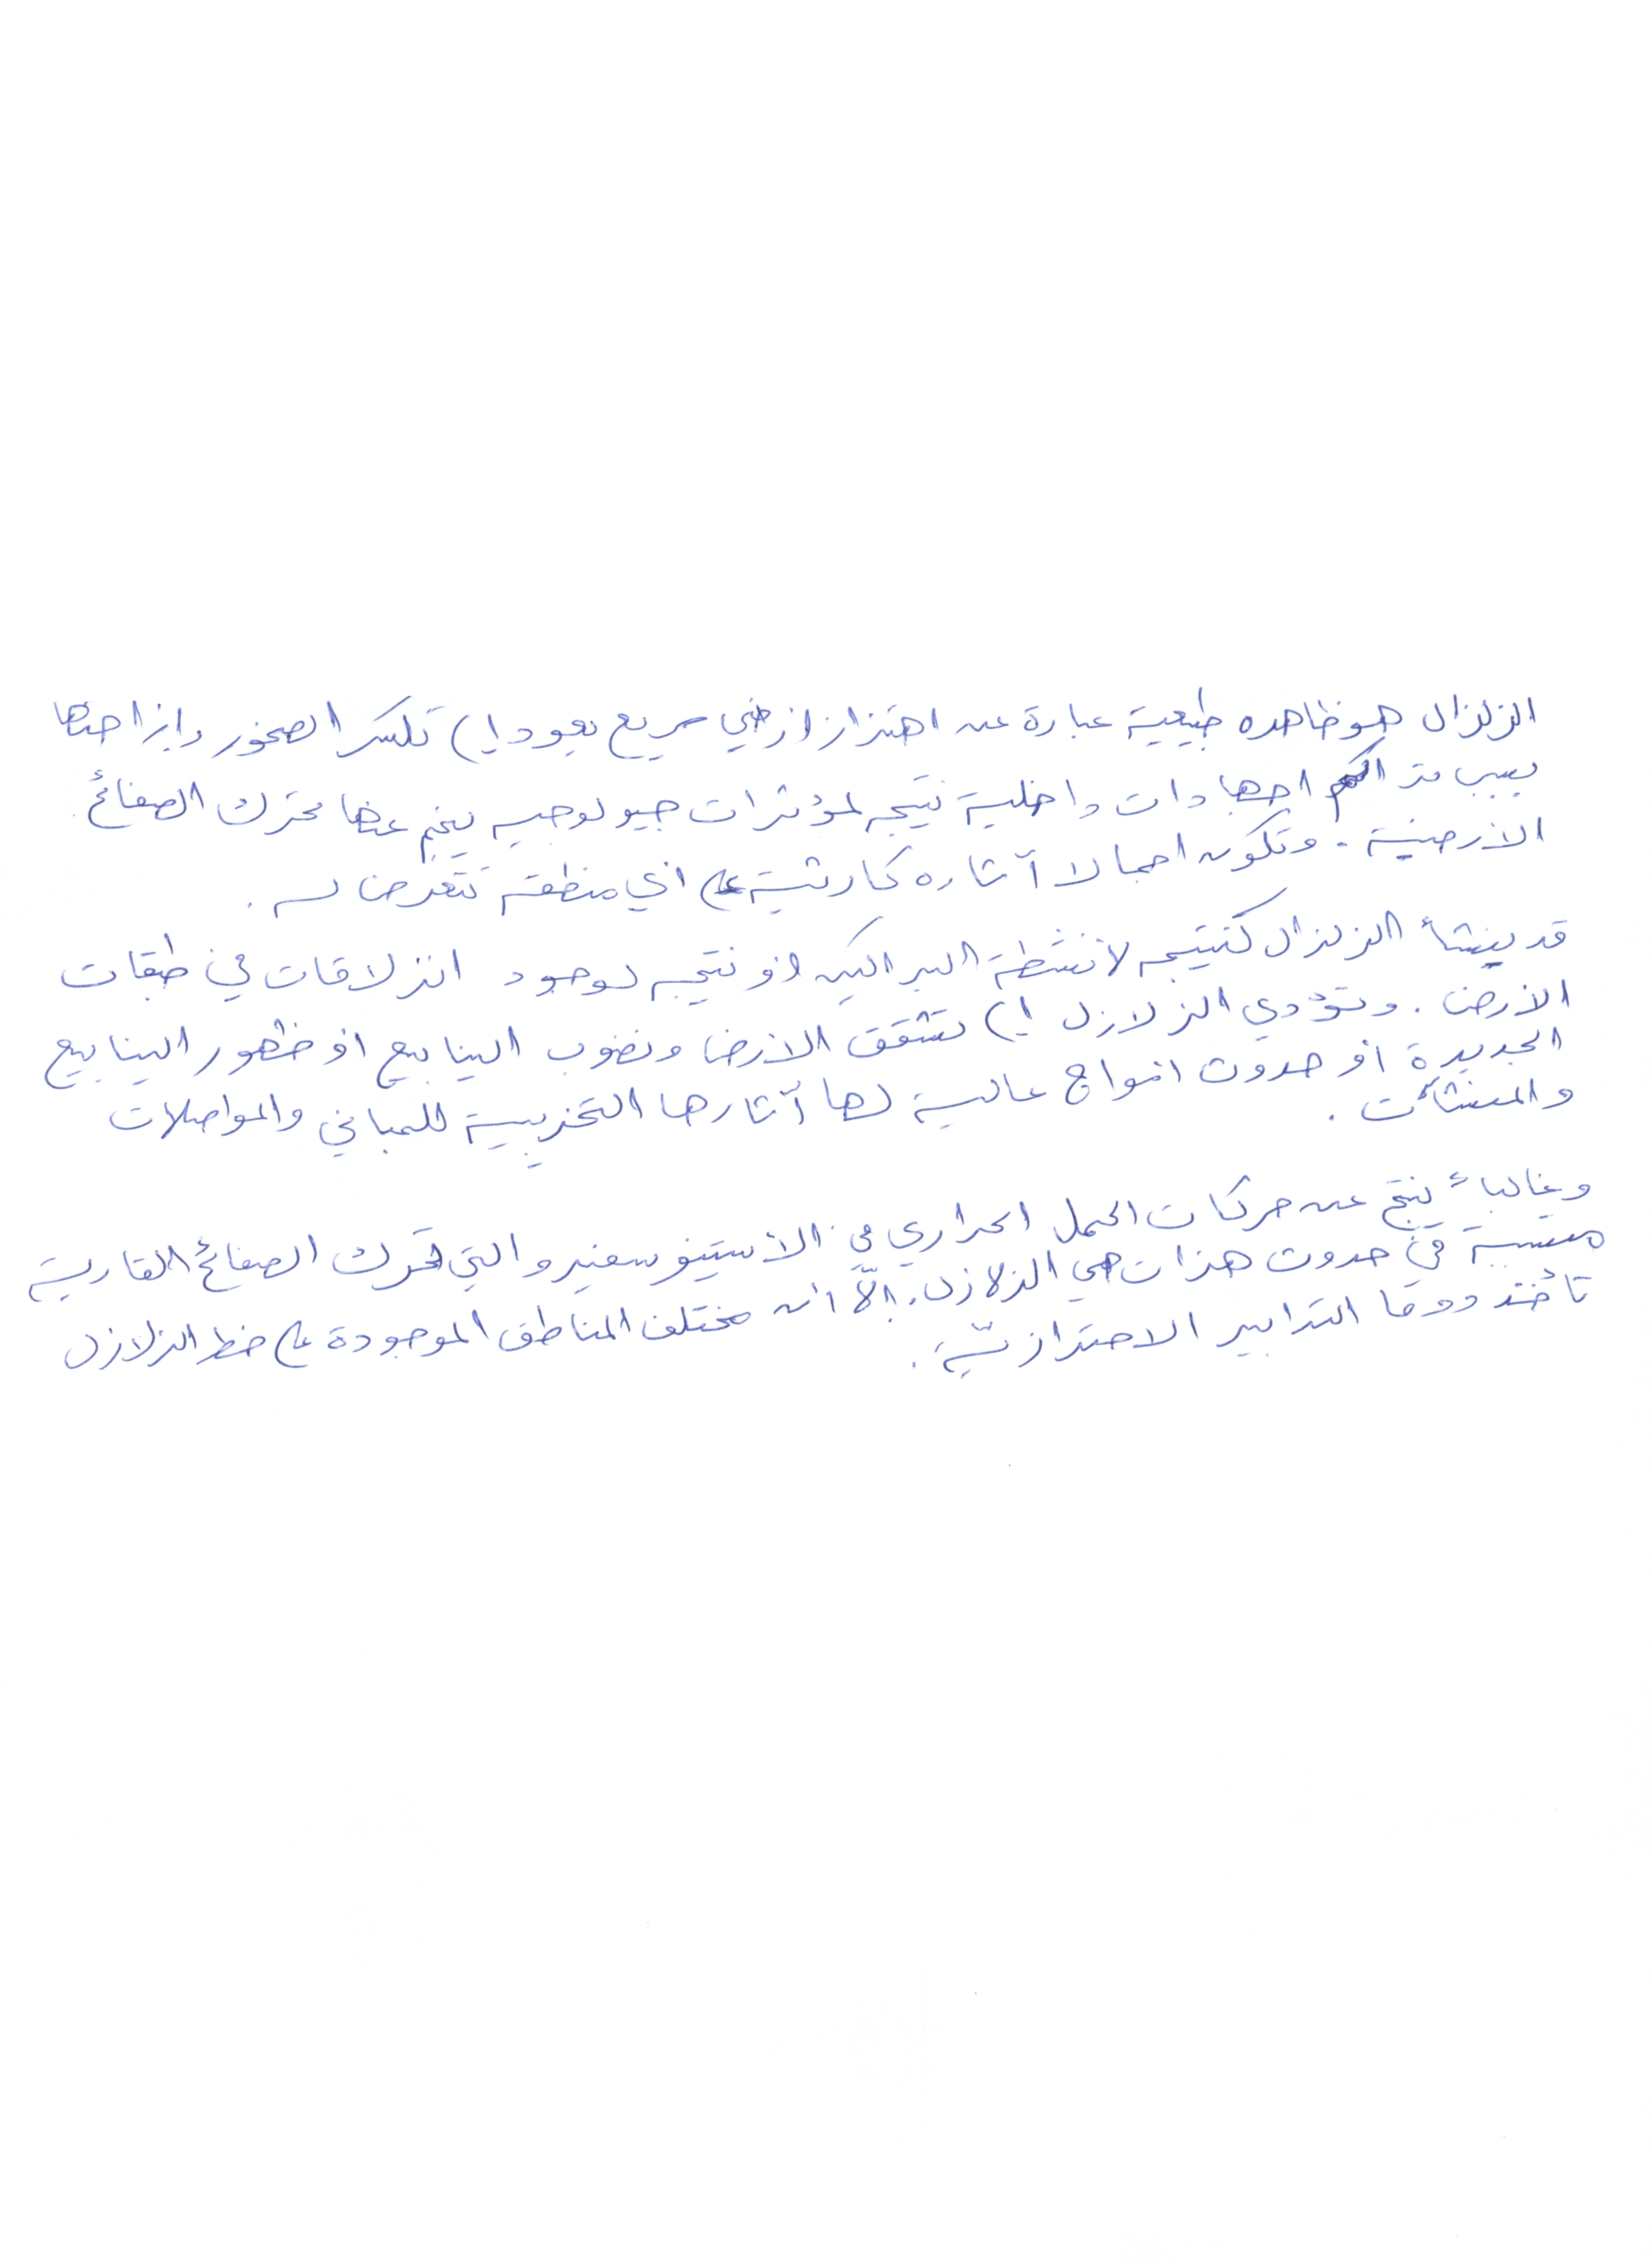 الزلزال هو ظاهره طبيعية عبارة عن اهتزاز أرضي سريع يعود إلى تكسر الصخور وإزاحتها
بسبب تراكم اجهادات داخلية نتيجه لمؤثرات جيولوجيه ينجم عنها تحرك الصفائح
الأرضية. وتكون اجمالا آثاره كارثية على أي منطقه تتعرض له.
قد ينشأ الزلزال كنتيجه لأنشطة البراكين أو نتيجه لوجود انزلاقات في طبقات
الأرض. وتؤدي الزلازل إلى تشقق الأرض ونضوب الينابيع أو ظهور الينابيع
الجديدة أو حدوث أمواج عالية لها آثارها التخريبية للمباني والمواصلات
والمنشآت.
وغالباً ينتج عن حركات الحمل الحراري في الأستينوسفير والتي تحرك الصفائح القارية
مسببة في حدوث هزات هي الزلازل. إلّا أن مختلف المناطق الموجودة على خط الزلازل
تأخذ دوما التدابير الاحترازية.